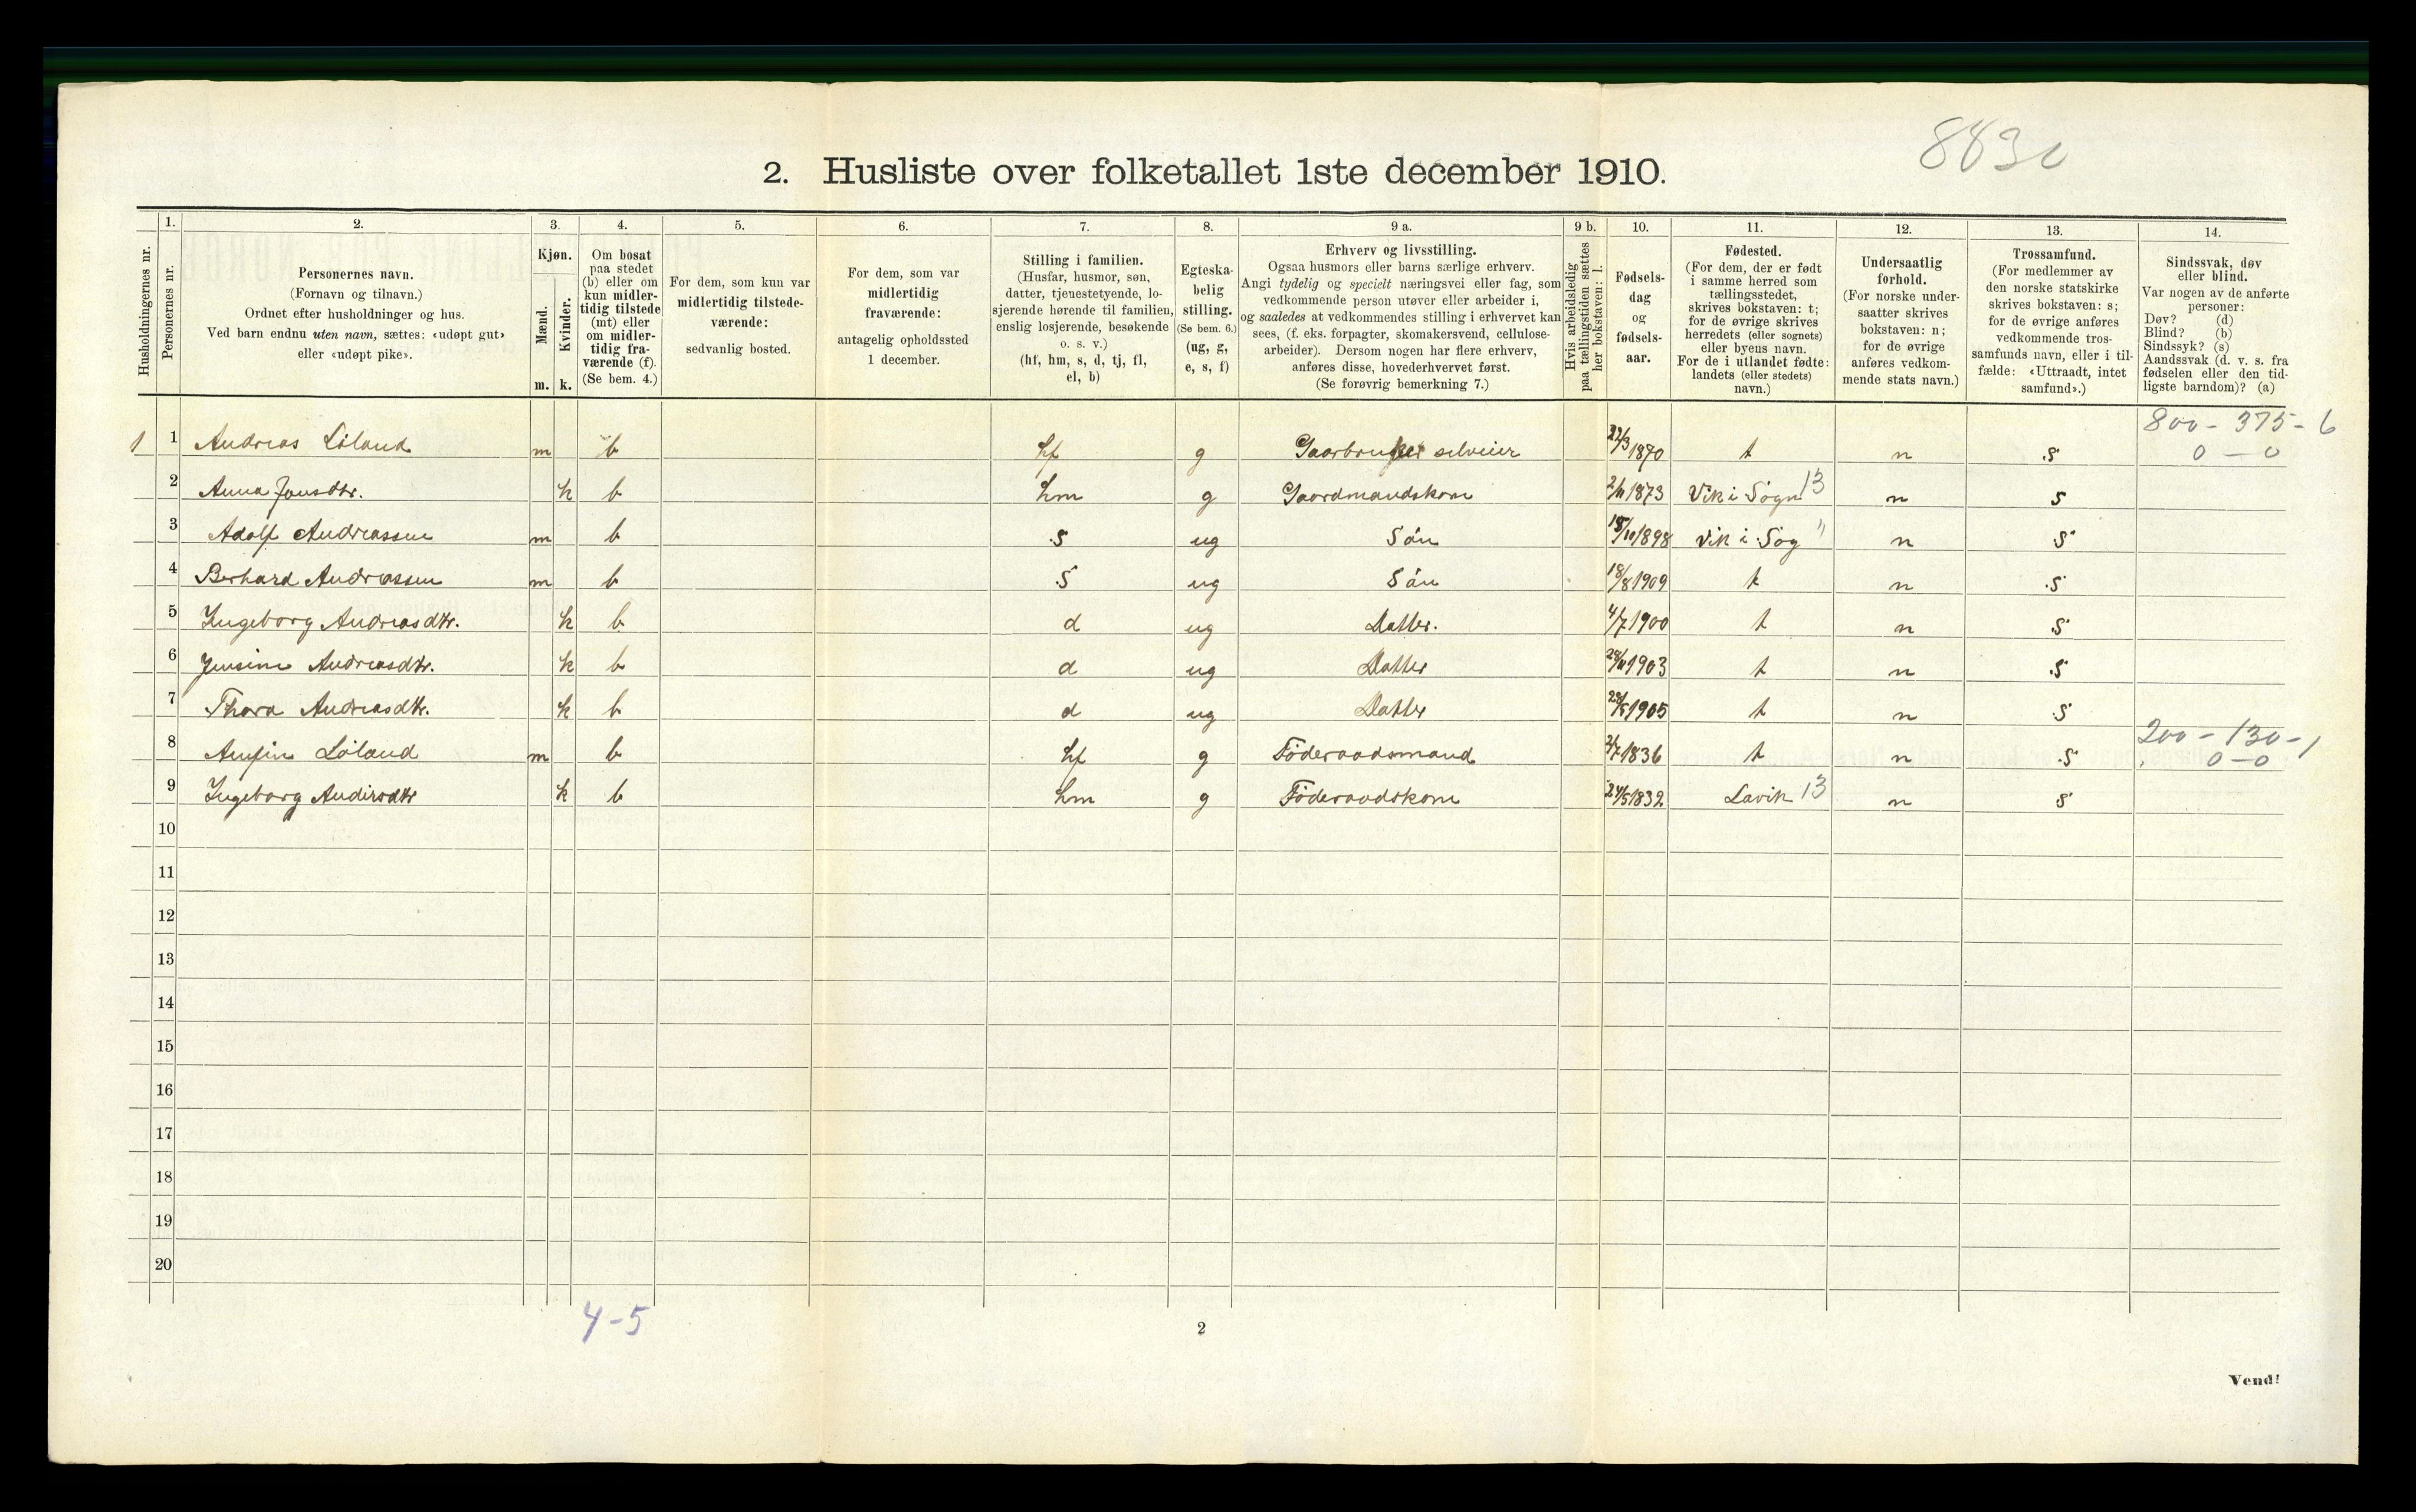 8830
2. Husliste over folketallet 1ste december 1910.
1. 2. 3. 4. 5. 6. 7. 8. 9 a. 9 b. 10. 11. 12. 13. 14.
Husholdningernes nr.
Personernes nr.
Personernes navn.
(Fornavn og tilnavn.)
Ordnet efter husholdninger og hus.
Ved barn endnu uten navn, sættes: «udøpt gut»
eller «udøpt pike».
Kjøn.
Mænd.
Kvinder.
m. k.
Om bosat
paa stedet
(b) eller om
kun midler-
tidig tilstede
(mt) eller
om midler-
tidig fra-
værende (f).
(Se bem. 4.)
For dem, som kun var
midlertidig tilstede-
værende:
sedvanlig bosted.
For dem, som var
midlertidig
fraværende:
antagelig opholdssted
1 december.
Stilling i familien.
(Husfar, husmor, søn,
datter, tjenestetyende, lo-
sjerende hørende til familien,
enslig losjerende, besøkende
o. s. v.)
(hf, hm, s, d, tj, fl,
el, b)
Egteska-
belig
stilling.
(Se bem. 6.)
(ug, g,
e, s, f)
Erhverv og livsstilling.
Ogsaa husmors eller barns særlige erhverv.
Angi tydelig og specielt næringsvei eller fag, som
vedkommende person utøver eller arbeider i,
og saaledes at vedkommendes stilling i erhvervet kan
sees, (f. eks. forpagter, skomakersvend, cellulose-
arbeider). Dersom nogen har flere erhverv,
anføres disse, hovederhvervet først.
(Se forøvrig bemerkning 7.)
Hvis arbeidsledig
paa tællingstiden sættes
her bokstaven: l.
Fødsels-
dag
og
fødsels-
aar.
Fødested.
(For dem, der er født
i samme herred som
tællingsstedet,
skrives bokstaven: t;
for de øvrige skrives
herredets (eller sognets)
eller byens navn.
For de i utlandet fødte:
landets (eller stedets)
navn.)
Undersaatlig
forhold.
(For norske under-
saatter skrives
bokstaven: n;
for de øvrige
anføres vedkom-
mende stats navn.)
Trossamfund.
(For medlemmer av
den norske statskirke
skrives bokstaven: s;
for de øvrige anføres
vedkommende tros-
samfunds navn, eller i til-
fælde: «Uttraadt, intet
samfund».)
Sindssvak, døv
eller blind.
Var nogen av de anførte
personer:
Døv? (d)
Blind? (b)
Sindssyk? (s)
Aandssvak (d. v. s. fra
fødselen eller den tid-
ligste barndom)? (a)
800 - 375 - 6
1 1 Andreas Løland m b hf g Gaarbruker selveier 22/3 1870 t n s 0 - 0
2 Anna Jonsdtr. k b hm g Gaardmandskone 2/11 1873 Vik i Sogn 13 n s
3 Adolf Andreassen m b s ug Søn 1898 Vik i Sog " n s
4 Berhard Andreassen m b s ug Søn 18/8 1909 t n s
5 Ingeborg Andreasdtr. k b d ug Datter. 4/7 1900 t n s
6 Jensine Andreasdtr. k b d ug Datter 1903 t n s
7 Thora Andreasdtr. k b d ug Datter 1905 t n s
200 - 130 - 1
8 Anfin Løland m b hf g Föderaadsmand 2/7 1836 t n s 0 - 0
9 Ingeborg k b hm g Föderaadskone 24/5 1832 Lavik 13 n s
10
11
12
13
14
15
16
17
18
19
20
4-5
2
Vend!